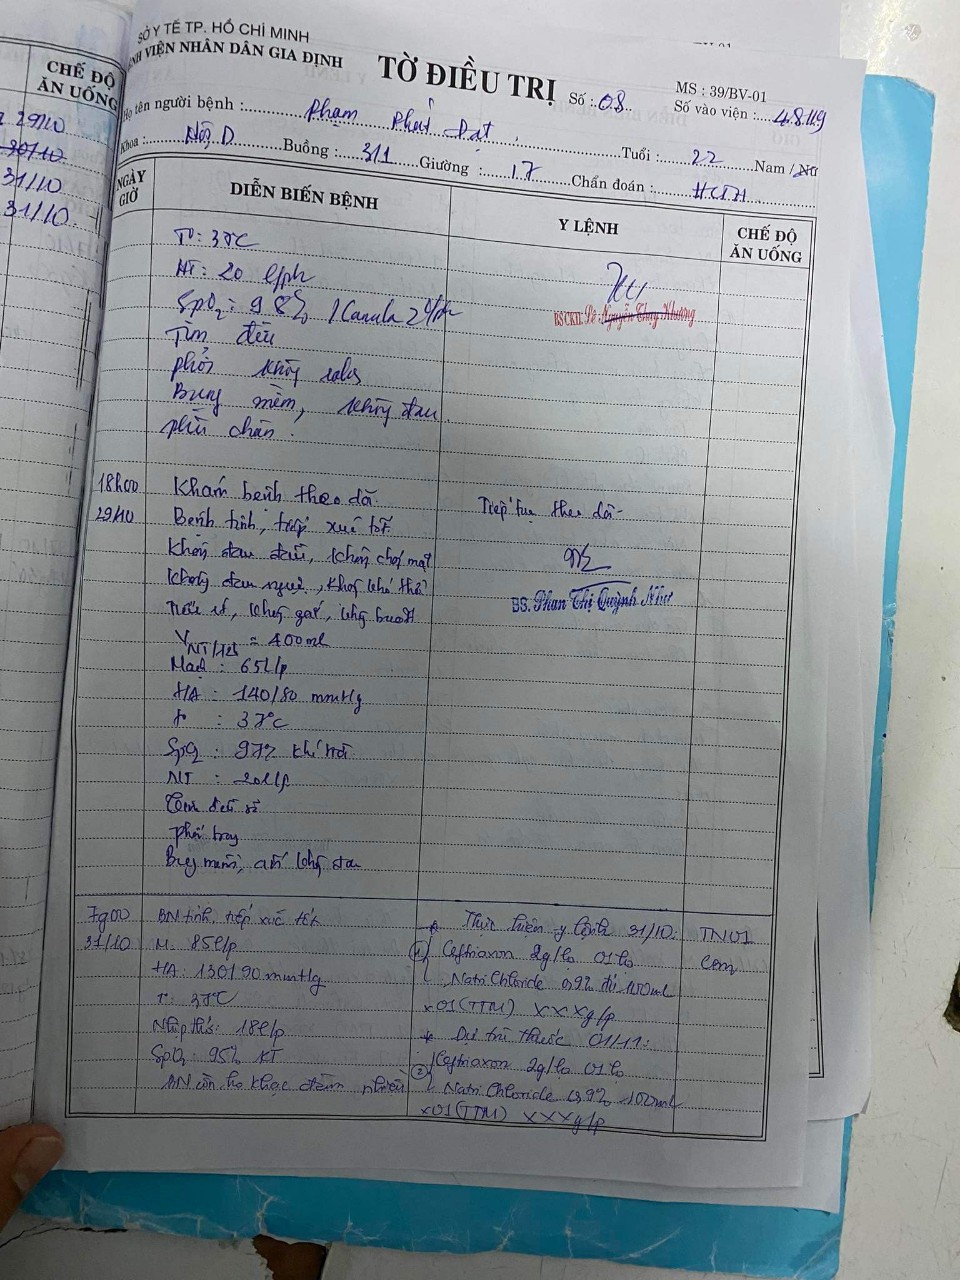 SỞ Y TẾ TP. HỒ CHÍ MINH
VIỆN NHÂN DÂN GIA ĐỊNH
TỜ ĐIỀU TRỊ
Số : 08
MS : 39/BV-01
Số vào viện :
Họ tên người bệnh : Phạm Phát Đạt
Tuổi : 22 Nam / Nữ
Khoa : Nội D Buồng : 311 Giường : 17 Chẩn đoán : HCTH
NGÀY GIỜ
DIỄN BIẾN BỆNH
Y LỆNH
CHẾ ĐỘ ĂN UỐNG
CHẾ ĐỘ
ĂN UỐNG
29/10
30/10
31/10
31/10
T°: 37°C
NT: 20 l/ph
SpO2: 98% / Canula 2l/ph
Tim đều
phổi không rales
Bụng mềm, không đau
phù chân.
BSCKII. Nguyễn Thuỵ Khương
18h00
29/10
Khám bệnh theo dõi
Bệnh tỉnh, tiếp xúc tốt
Không đau đầu, không chóng mặt
Không đau ngực, không khó thở
Tiểu ít, không gắt, không buốt
V NT/12h = 400ml
Mạch : 65l/p
HA : 140/80 mmHg
t° : 37°C
SpO2 : 97% khí trời
NT : 20l/p
Tim đều rõ
Phổi trong
Bụng mềm, ấn không đau
Tiếp tục theo dõi
BS. Phan Thị Quỳnh Như
7g00
31/10
BN tỉnh, tiếp xúc tốt
M: 85l/p
HA: 130/90 mmHg
T°: 37°C
Nhịp thở: 18l/p
SpO2: 95% KT
BN còn ho khạc đàm nhiều
* Thực hiện y lệnh 31/10:
(1) Ceftriaxon 2g/lọ 01 lọ
Natri Chloride 0,9% 100ml
x01 (TTM) XXXg/p
* Dự trù thuốc 01/11:
(2) Ceftriaxon 2g/lọ 01 lọ
Natri Chloride 0,9% 100ml
x01 (TTM) XXXg/p
TN01
Cơm